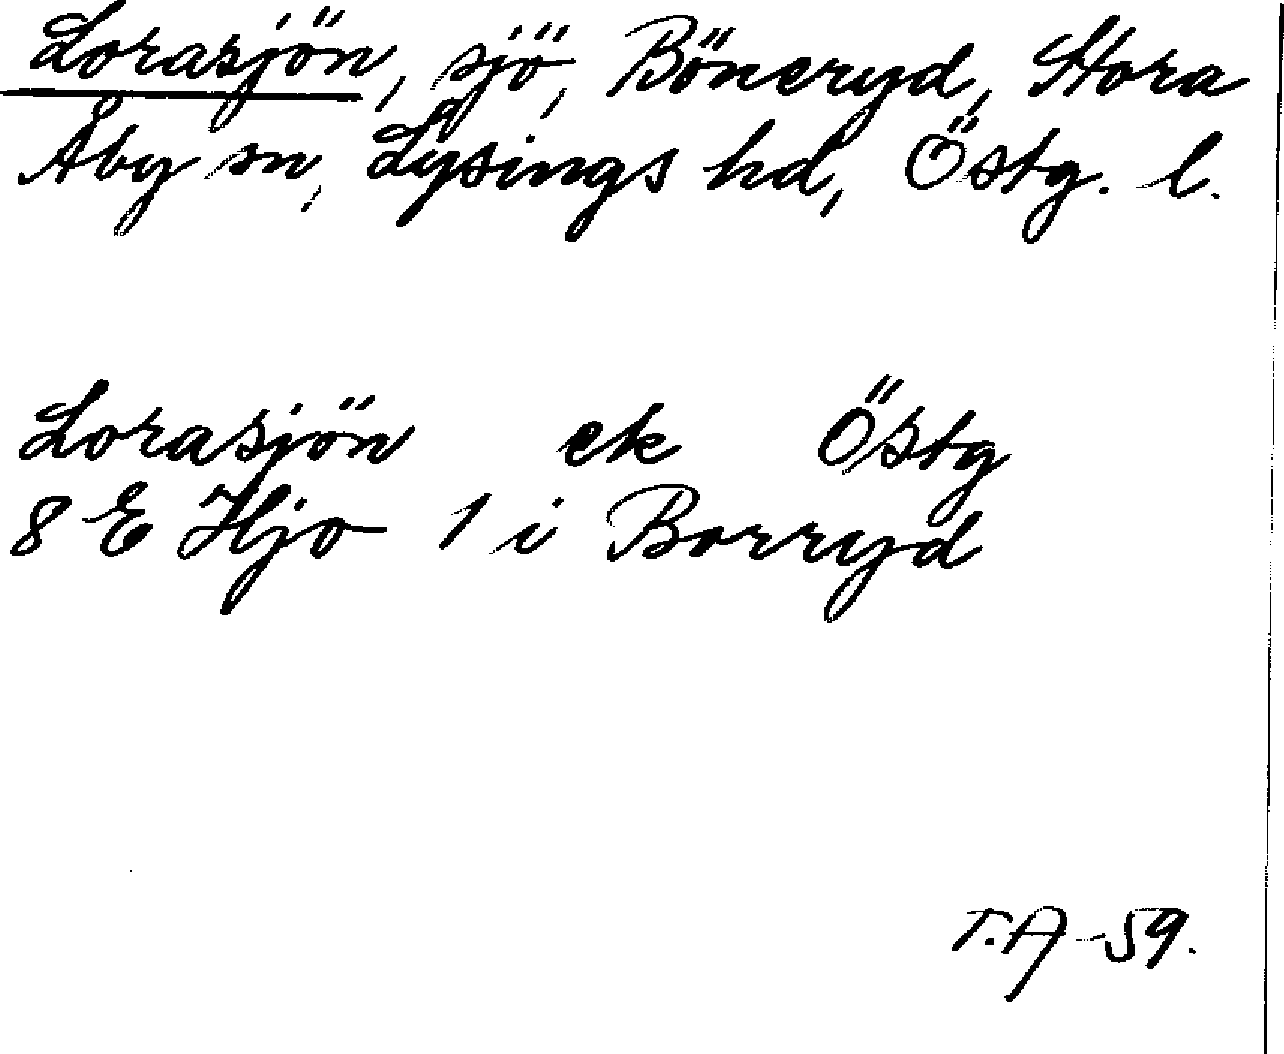 Lorasjön, sjö, Böneryd, Stora
Åby sn, Lysings hd, Östg. l.
Lorasjön ek Östg
8 E Hjo 1 i Borryd
T.A-59.